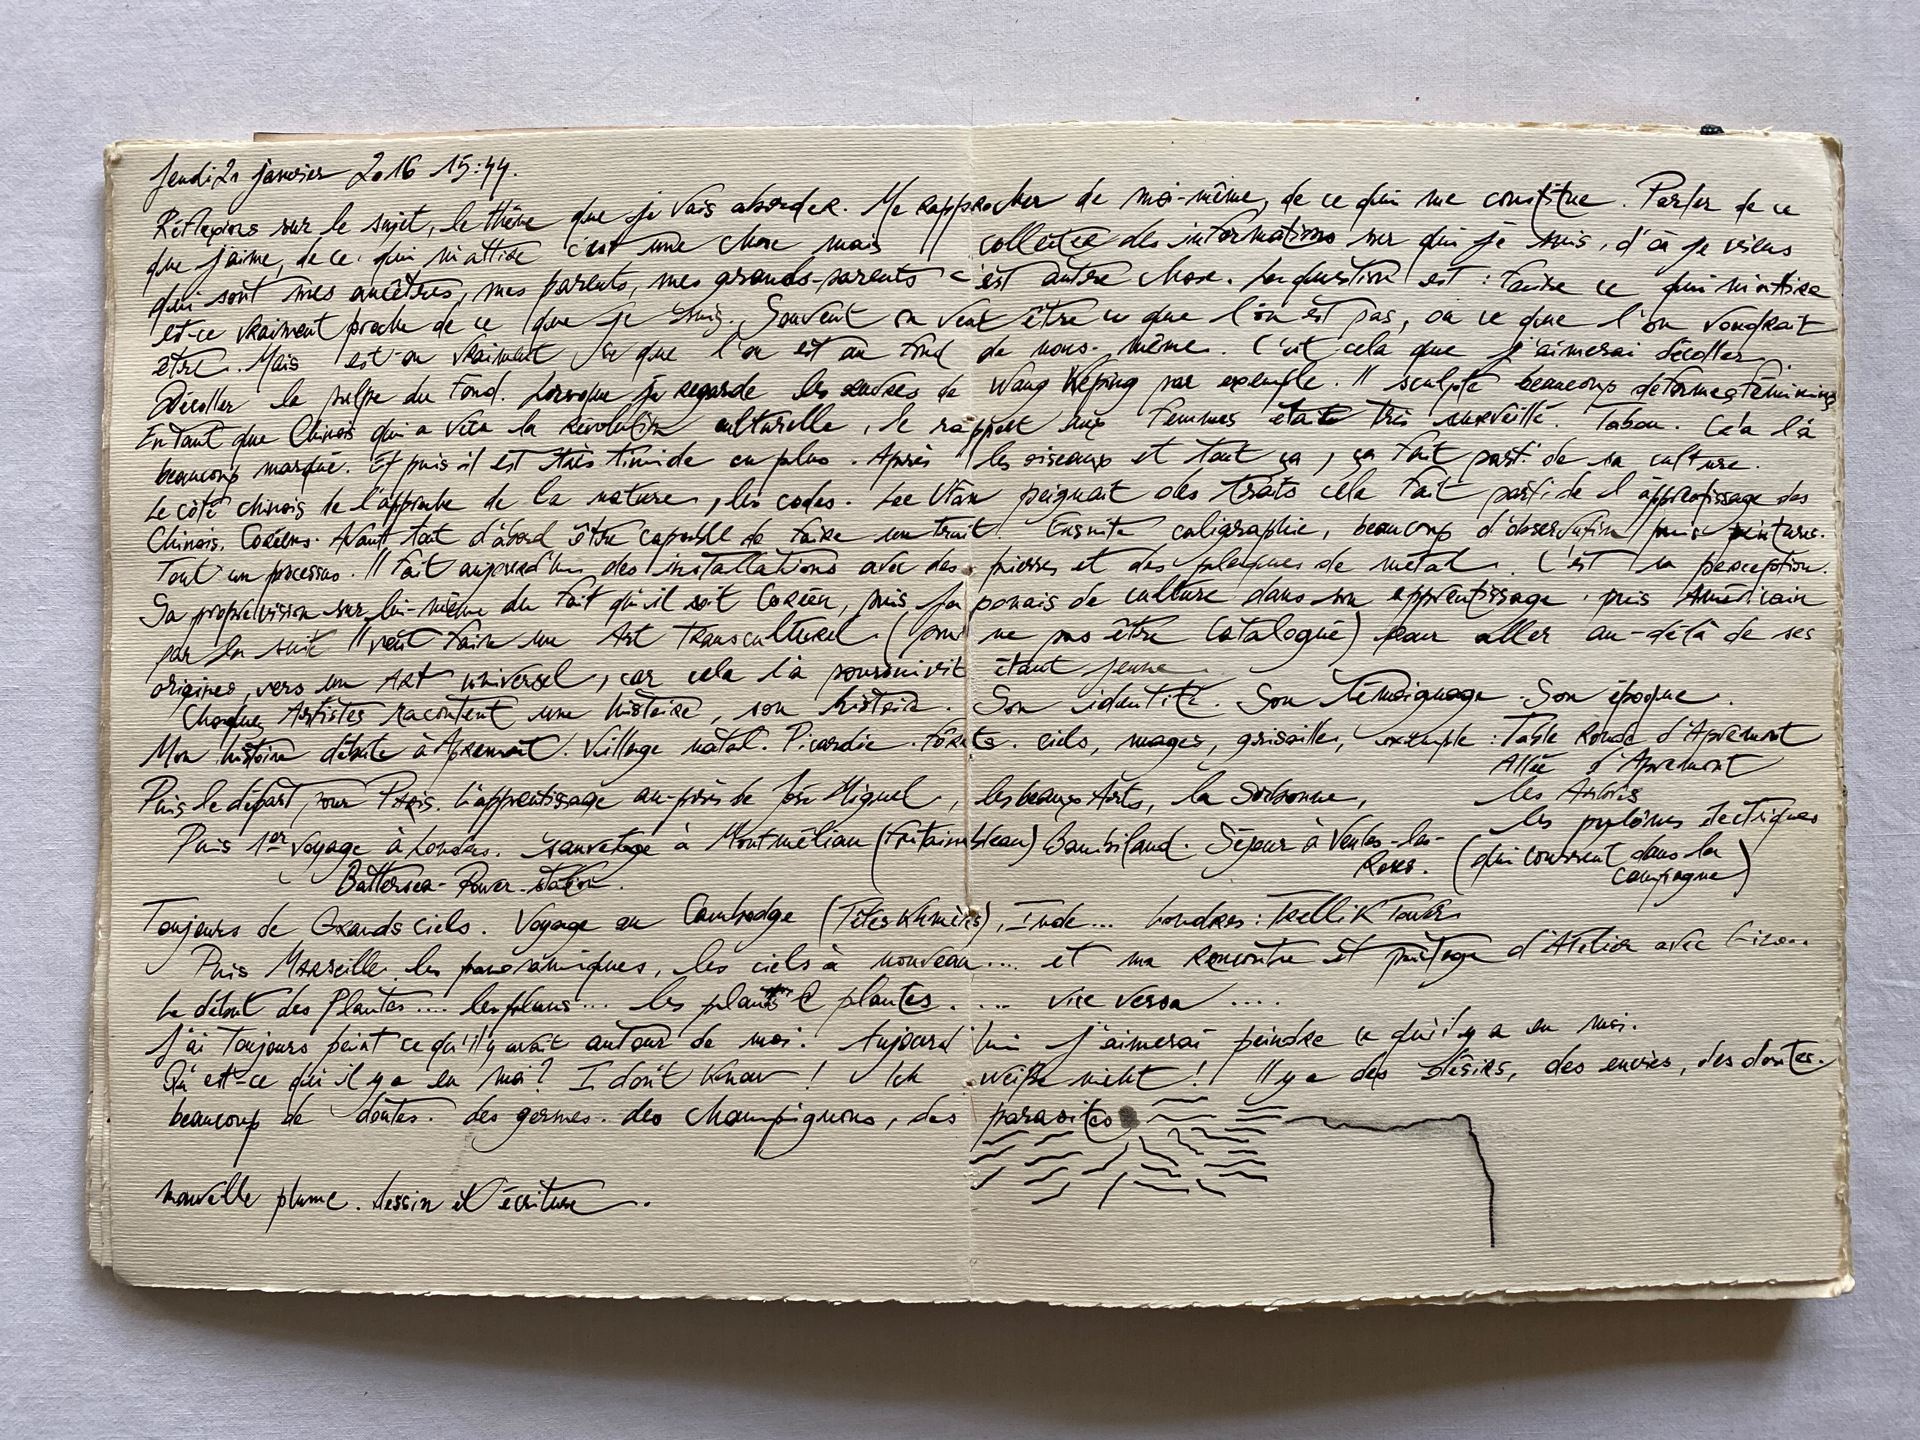 Jeudi 21 janvier 2016 15:44.
Réflexions sur le sujet, le thème que je vais aborder. Me rapprocher de moi-même, de ce qui me constitue. Parler de ce
que j'aime, de ce qui m'attire c'est une chose mais collecter des informations sur qui je suis, d'où je viens
qui sont mes ancêtres, mes parents, mes grands-parents c'est autre chose. La question est : Faire ce qui m'attire
est-ce vraiment proche de ce que je suis. Souvent on veut être ce que l'on est pas, ou ce que l'on voudrait
être. Mais est-on vraiment ce que l'on est au fond de nous-même. C'est cela que j'aimerai décoller.
Décoller la pulpe du fond. Lorsque je regarde les œuvres de Wang Keping par exemple. Il sculpte beaucoup de formes féminines
En tant que Chinois qui a vécu la révolution culturelle, le rapport aux femmes était très surveillé. Tabou. Cela l'a
beaucoup marqué. Et puis il est très timide en plus. Après les oiseaux et tout ça, ça fait parti de sa culture.
Le côté chinois de l'approche de la nature, les codes. Lee Ufan peignait des traits cela fait parti de l'apprentissage des
Chinois. Coréens. Avant tout d'abord être capable de faire un trait. Ensuite caligraphie, beaucoup d'observation puis peintures.
Tout un processus. Il fait aujourd'hui des installations avec des pierres et des plaques de métal. C'est sa perception.
Sa propre vision sur lui-même du fait qu'il soit Coréen, puis Japonais de culture dans son apprentissage. puis Américain
par la suite il veut faire un Art Transculturel (pour ne pas être catalogué) pour aller au-delà de ses
origines, vers un Art universel, car cela l'a poursuivit étant jeune.
Chaques Artistes racontent une histoire, son histoire. Son identité. Son témoignage. Son époque.
Mon histoire débute à Apremont. Village natal. Picardie. Forêts. ciels, nuages, grisailles, exemple : Table Ronde d'Apremont
Allée d'Apremont
Puis le départ pour Paris. L'apprentissage au-près de José Miguel, les beaux Arts, la Sorbonne, les Arbres
les pylônes électriques
Puis 1er voyage à Londres. sauvetage à Montmélian (Fontainebleau) Bambiland. Séjour à Ventes-les-
Roses. (qui courrent dans la
campagne)
Battersea-Power-Station.
Toujours de Grands ciels. Voyage au Cambodge (Têtes Khmères), Inde... Londres : Trellik Tower
Puis Marseille les panoramiques, les ciels à nouveau.... et ma Rencontre et partage d'Atelier avec
Le début des Plantes.... les plans... les plans & plantes..... vice versa ....
J'ai toujours peint ce qu'il y avait autour de moi. Aujourd'hui j'aimerai peindre ce qu'il y a en moi.
Qu'est-ce qui il y a en moi ? I don't know ! Ich weiße nicht ! Il y a des désirs, des envies, des doutes.
beaucoup de doutes. des germes. des champignons, des parasites
nouvelle plume. dessin et l'écriture.